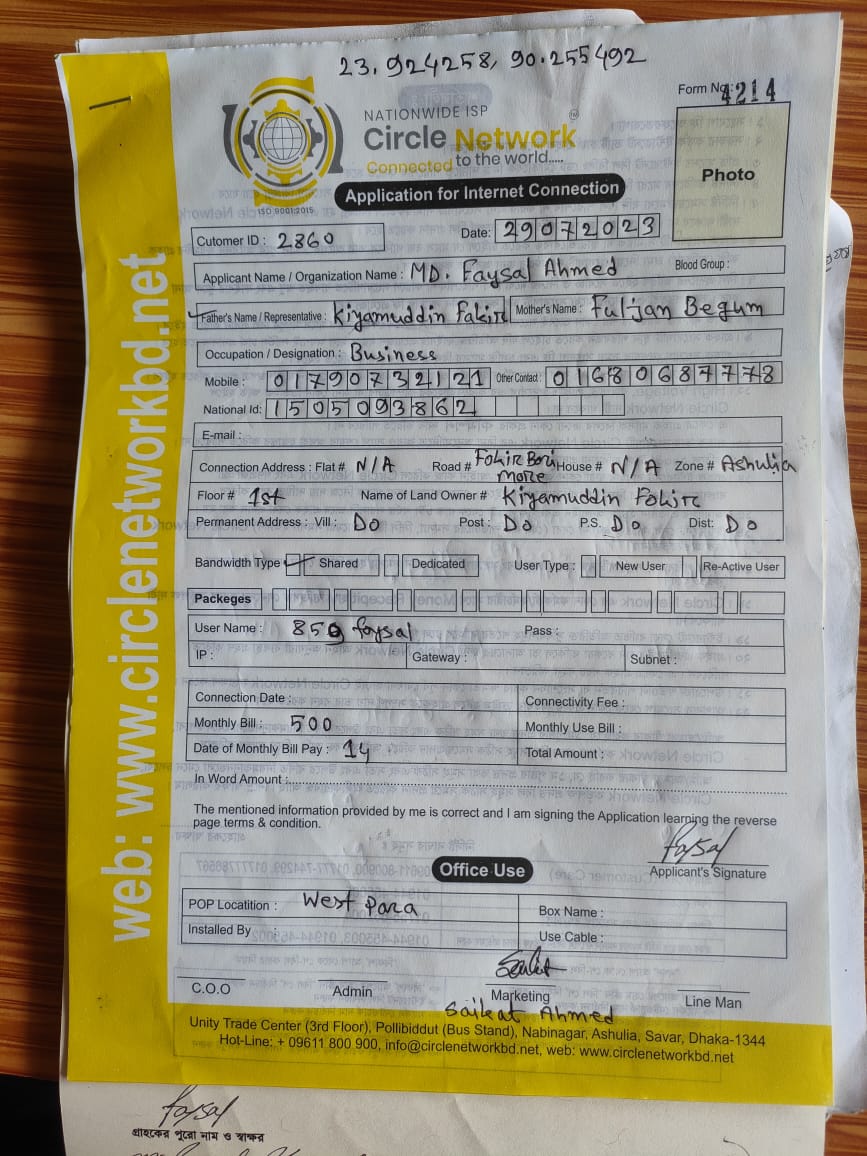 23.924258, 90.255492
Form No: 4214
NATIONWIDE ISP
Circle Network
Connected to the world.....
ISO 9001:2015
Photo
Application for Internet Connection
Cutomer ID : 2860 Date: 29072023
Applicant Name / Organization Name : MD. Faysal Ahmed Blood Group :
Father's Name / Representative : Kiyamuddin Fakir Mother's Name : Fuljan Begum
Occupation / Designation : Business
Mobile : 01790732121 Other Contact : 01680687778
National Id: 1505093862
E-mail :
Connection Address : Flat # N/A Road # Fokir Bari more House # N/A Zone # Ashulia
Floor # 1st Name of Land Owner # Kiyamuddin Fokir
Permanent Address : Vill : Do Post : Do P.S. Do Dist: Do
Bandwidth Type Shared Dedicated User Type : New User Re-Active User
Packeges
User Name : 859 faysal Pass :
IP : Gateway : Subnet :
Connection Date : Connectivity Fee :
Monthly Bill : 500 Monthly Use Bill :
Date of Monthly Bill Pay : 14 Total Amount :
In Word Amount :
The mentioned information provided by me is correct and I am signing the Application learning the reverse
page terms & condition.
faysal
Applicant's Signature
Office Use
POP Locatition : West para Box Name :
Installed By : Use Cable :
C.O.O Admin Marketing Line Man
Saikat Ahmed
Unity Trade Center (3rd Floor), Pollibiddut (Bus Stand), Nabinagar, Ashulia, Savar, Dhaka-1344
Hot-Line: + 09611 800 900, info@circlenetworkbd.net, web: www.circlenetworkbd.net
web: www.circlenetworkbd.net
faysal
গ্রাহকের পুরো নাম ও স্বাক্ষর